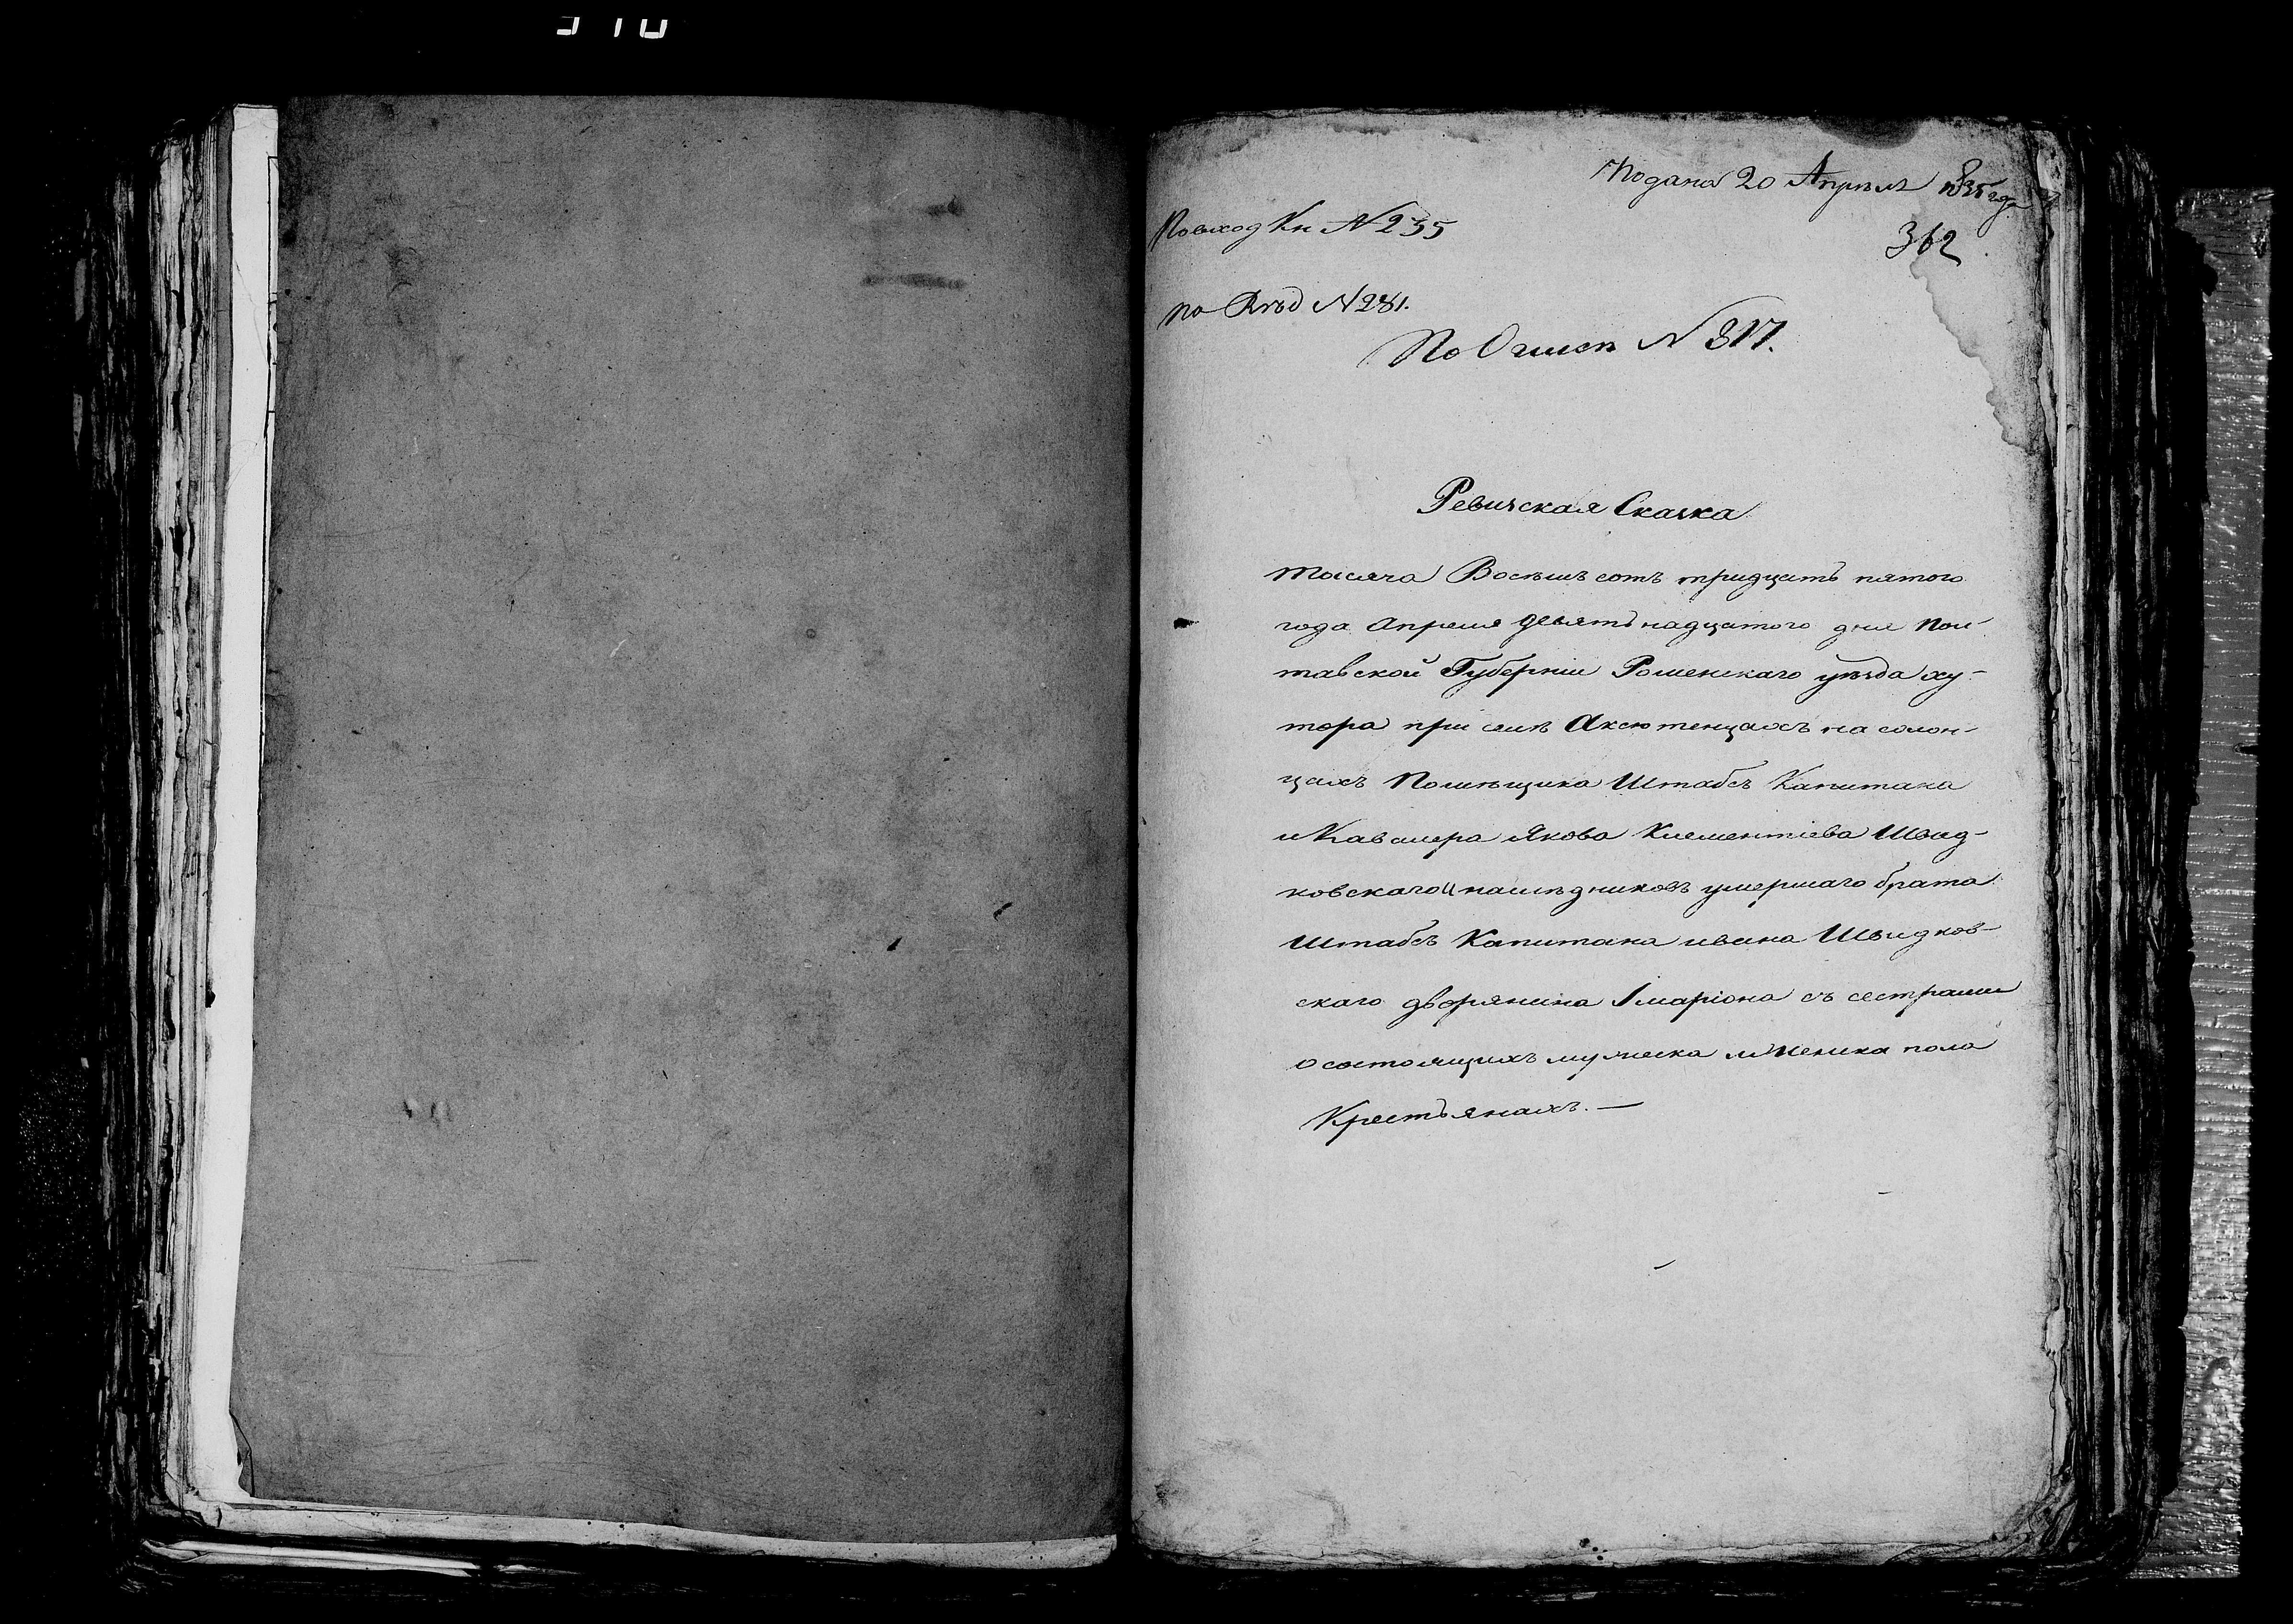 Подана 20 Апрѣля 1835 года
По вход Кн № 235
362
по Ряд № 281.
По Опися № 317.
Ревизская Сказка
тысяча Восемь сотъ тридцать пятого
года Апреля девятьнадцатого дня Пол-
тавской Губернiи Роменскаго уѣзда ху-
тора при селѣ Аксютенцахъ на солон-
цахъ Помѣщика Штабсъ Капитана
и Кавалера Якова Клементiева Швид-
ковскаго и наслѣдниковъ умершаго брата
Штабсъ Капитана ивана Швидков-
скаго дворянина Iларiона съ сестрами
о состоящихъ мужеска и женска пола
Крестьянахъ. —